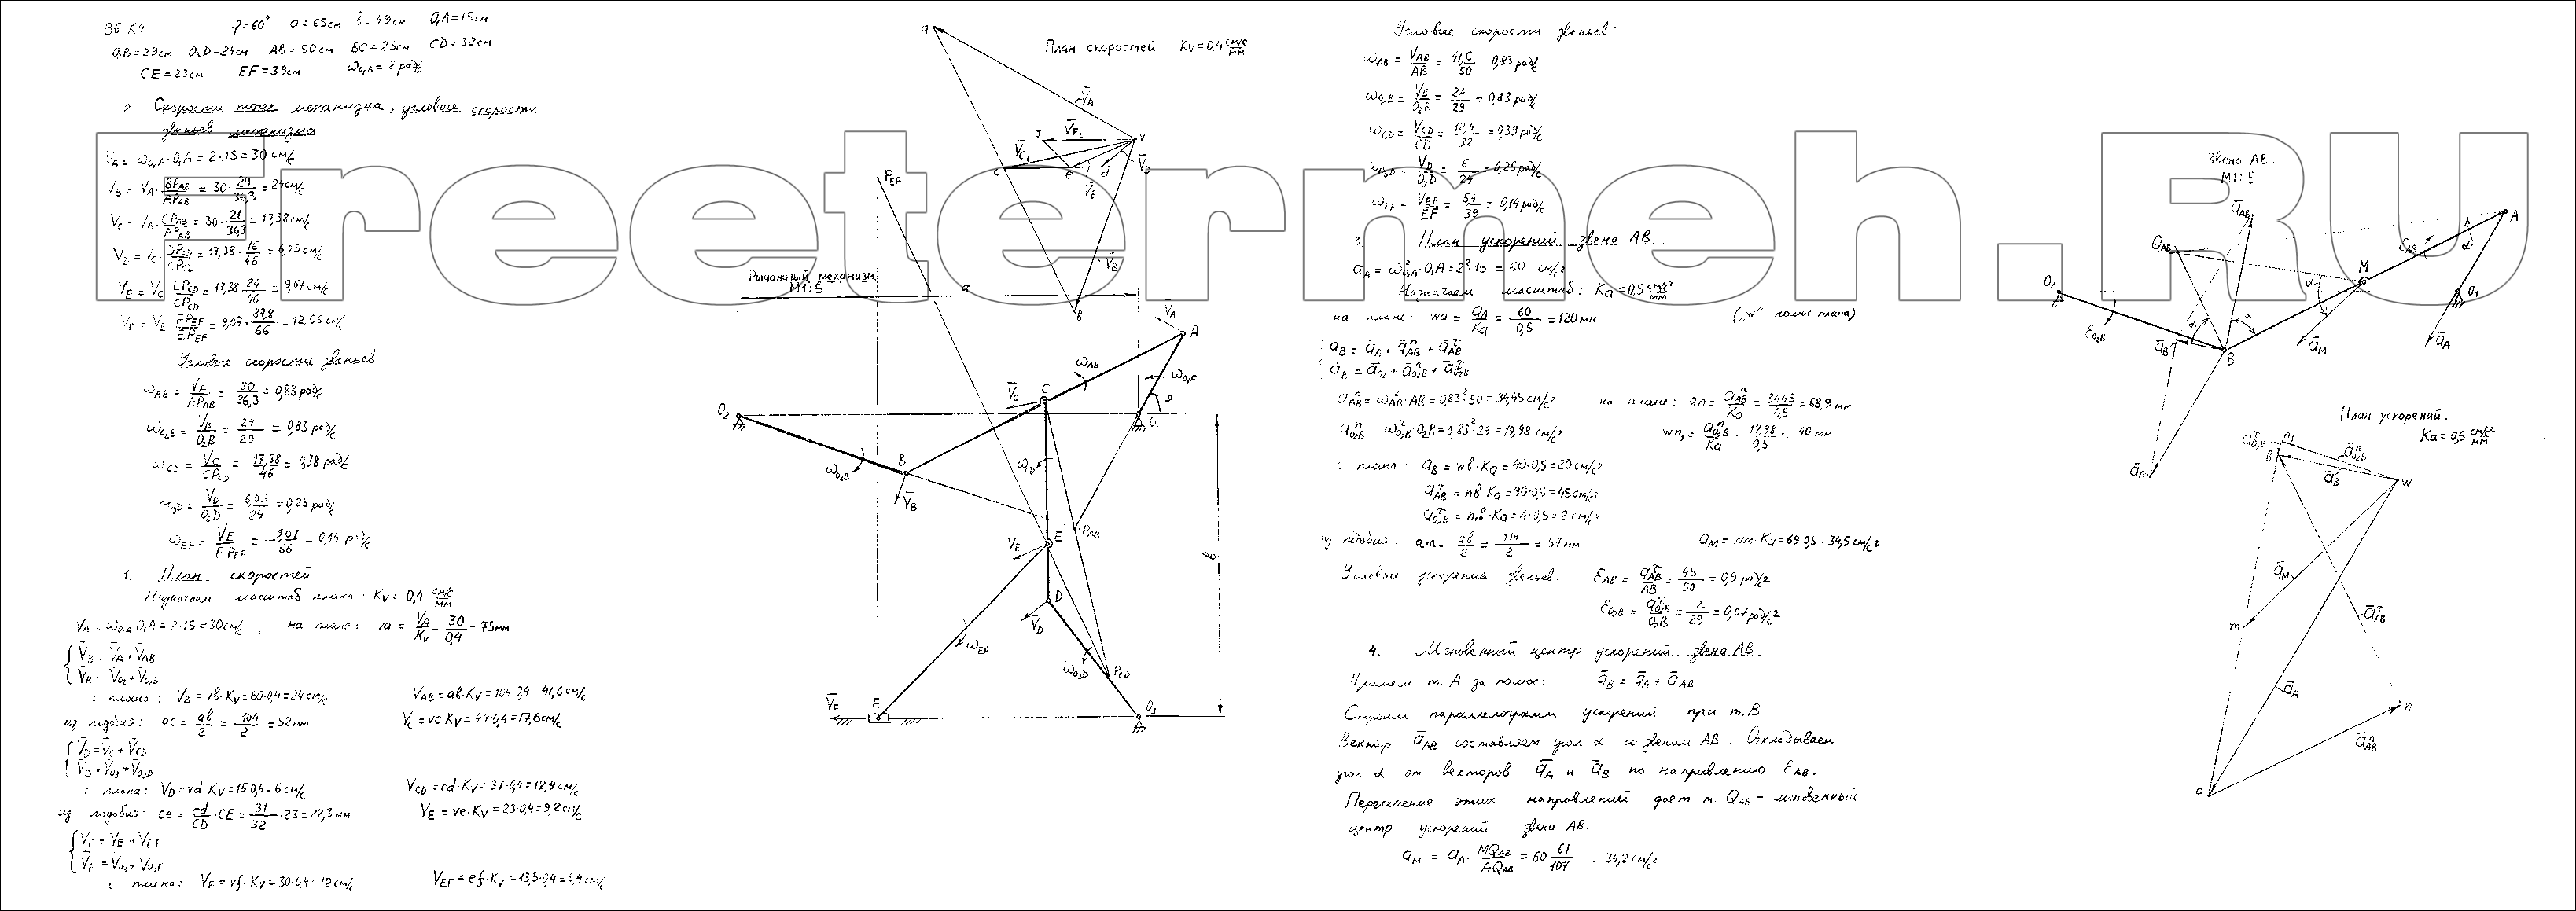 В6 К4 φ=60° a=65см b=49см O₁A=15см
O₂B=29см O₃D=24см AB=50см BC=25см CD=32см
CE=23см EF=39см ωO₁A=2 рад/с
2. Скорости точек механизма, угловые скорости
звеньев механизма
V_A = ωO₁A·O₁A = 2·15 = 30 см/с
V_B = V_A· BP_AB/AP_AB = 30· 29/36,3 = 24 см/с
V_C = V_A· CP_AB/AP_AB = 30· 21/36,3 = 17,38 см/с
V_D = V_C· DP_CD/CP_CD = 17,38· 16/46 = 6,05 см/с
V_E = V_C· EP_CD/CP_CD = 17,38· 24/46 = 9,07 см/с
V_F = V_E· FP_EF/EP_EF = 9,07· 87,8/66 = 12,06 см/с
Угловые скорости звеньев
ω_AB = V_A/AP_AB = 30/36,3 = 0,83 рад/с
ωO₂B = V_B/O₂B = 24/29 = 0,83 рад/с
ω_CD = V_C/CP_CD = 17,38/46 = 0,38 рад/с
ωO₃D = V_D/O₃D = 6,05/24 = 0,25 рад/с
ω_EF = V_E/EP_EF = 9,07/66 = 0,14 рад/с
1. План скоростей.
Назначаем масштаб плана: K_V = 0,4 см/с/мм
V_A = ωO₁A·O₁A = 2·15 = 30 см/с, на плане: va = V_A/K_V = 30/0,4 = 75 мм
V̄_B = V̄_A + V̄_AB
V̄_B = V̄O₂ + V̄O₂B
с плана: V_B = vb·K_V = 60·0,4 = 24 см/с V_AB = ab·K_V = 104·0,4 41,6 см/с
из подобия: ac = ab/2 = 104/2 = 52 мм V_C = vc·K_V = 44·0,4 = 17,6 см/с
V̄_D = V̄_C + V̄_CD
V̄_D = V̄O₃ + V̄O₃D
с плана: V_D = vd·K_V = 15·0,4 = 6 см/с V_CD = cd·K_V = 31·0,4 = 12,4 см/с
из подобия: ce = cd/CD·CE = 31/32·23 = 22,3 мм V_E = ve·K_V = 23·0,4 = 9,2 см/с
V̄_F = V̄_E + V̄_EF
с плана: V_F = vf·K_V = 30·0,4 · 12 см/с V_EF = ef·K_V = 13,5·0,4 = 5,4 см/с
План скоростей. K_V = 0,4 см/с/мм
a
V̄_A
f V̄_F v
V̄_C V̄_D
c e d
V̄_E
V̄_B
в
P_EF
Рычажный механизм
М1:5
a
V̄_A
A
ω_AB
V̄_C C
ωO₁A
φ
O₂ O₁
B
ωO₂B
ω_CD
V̄_B
P_AB
V̄_E E
б
D
V̄_D
ω_EF
ωO₃D
P_CD
V̄_F F
O₃
Угловые скорости звеньев:
ω_AB = V_AB/AB = 41,6/50 = 0,83 рад/с
ωO₂B = V_B/O₂B = 24/29 = 0,83 рад/с
ω_CD = V_CD/CD = 12,4/32 = 0,39 рад/с
ωO₃D = V_D/O₃D = 6/24 = 0,25 рад/с
ω_EF = V_EF/EF = 5,4/39 = 0,14 рад/с
3. План ускорений звена АВ.
a_A = ω²O₁A·O₁A = 2²·15 = 60 см/с²
Назначаем масштаб: Ka = 0,5 см/с²/мм
на плане: wa = a_A/Ka = 60/0,5 = 120 мм („w" - полюс плана)
ā_B = ā_A + āⁿ_AB + ā^τ_AB
ā_B = āO₂ + āⁿO₂B + ā^τO₂B
aⁿ_AB = ω²_AB·AB = 0,83²·50 = 34,45 см/с² на плане: an = aⁿ_AB/Ka = 34,45/0,5 = 68,9 мм
aⁿO₂B ω²O₂B·O₂B = 0,83²·29 = 19,98 см/с² wn₁ = aⁿO₂B/Ka = 19,98/0,5 = 40 мм
с плана: a_B = wb·Ka = 40·0,5 = 20 см/с²
a^τ_AB = nb·Ka = 90·0,5 = 45 см/с²
a^τO₂B = n₁b·Ka = 4·0,5 = 2 см/с²
из подобия: am = ab/2 = 114/2 = 57 мм a_M = wm·Ka = 69·0,5 · 34,5 см/с²
Угловые ускорения звеньев: ε_AB = a^τ_AB/AB = 45/50 = 0,9 рад/с²
εO₂B = a^τO₂B/O₂B = 2/29 = 0,07 рад/с²
4. Мгновенный центр ускорений звена АВ.
Примем т. А за полюс: ā_B = ā_A + ā_AB
Строим параллелограмм ускорений при т. В
Вектор ā_AB составляет угол α со звеном АВ. Откладываем
угол α от векторов ā_A и ā_B по направлению ε_AB.
Пересечение этих направлений дает т. Q_AB – мгновенный
центр ускорений звена АВ.
a_M = a_A· MQ_AB/AQ_AB = 60 61/107 = 34,2 см/с²
Звено АВ.
М1:5
ā_AB
A
Q_AB
ε_AB
α
M
α
O₂ O₁
εO₂B
α α
ā_B B
ā_M ā_A
ā_A
План ускорений.
Ka = 0,5 см/с²/мм
ā^τO₂B n₁ āⁿO₂B
в ā_B w
ā_M
m
ā^τ_AB
ā_A
n
āⁿ_AB
a
Freetermeh.RU